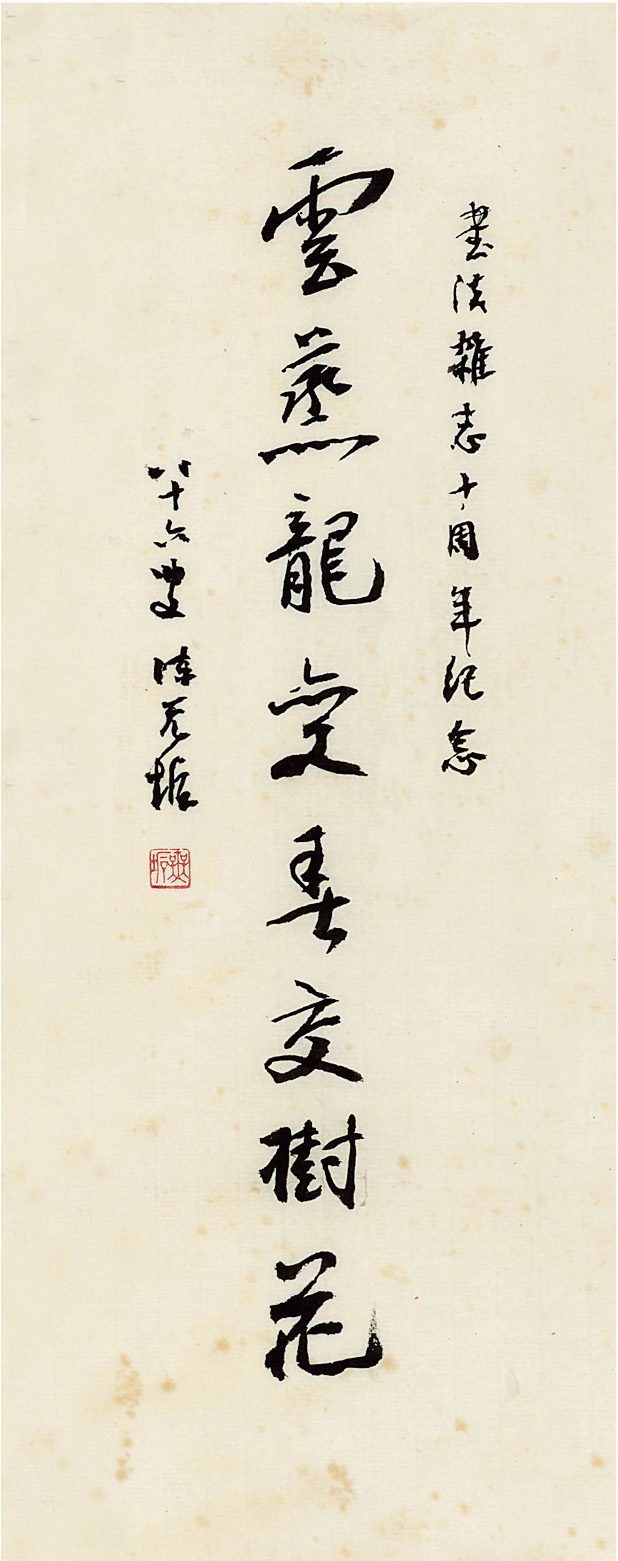 書法雜志十周年纪念
雲蒸龍變春交樹花
八十六叟陳无垢